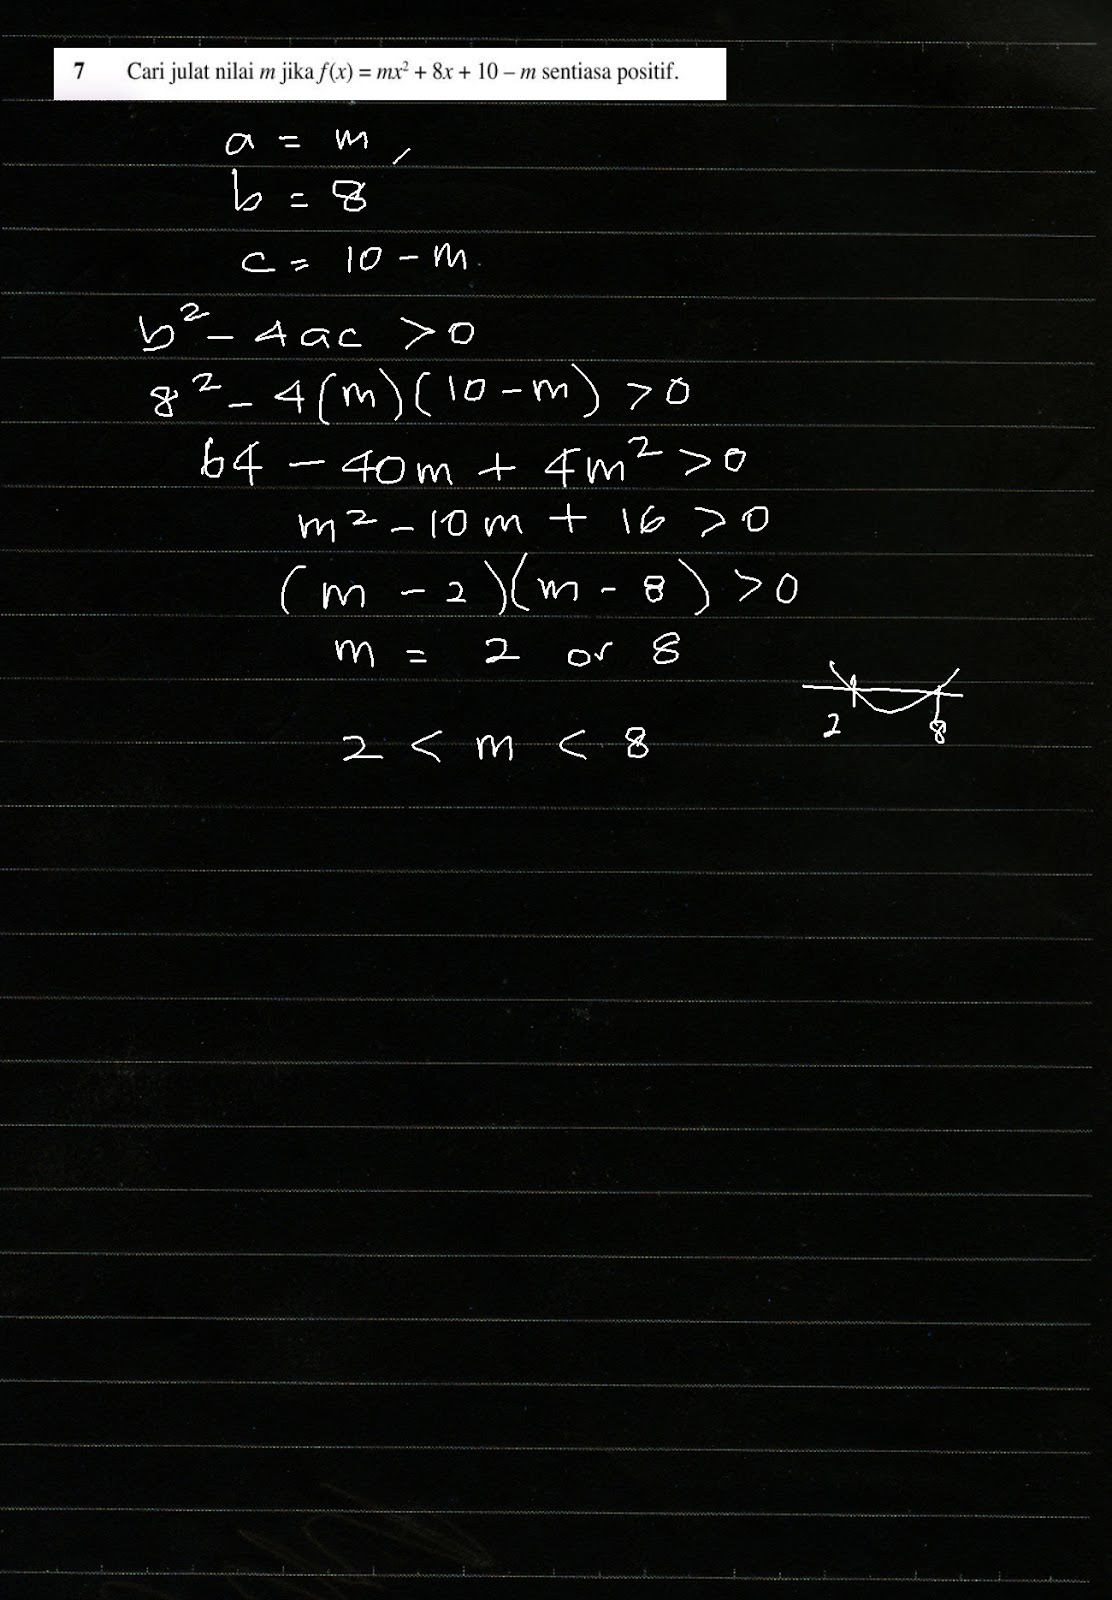 7 Cari julat nilai m jika f(x) = mx² + 8x + 10 – m sentiasa positif.
a = m,
b = 8
c = 10 - m.
b² - 4ac > 0
8² - 4(m)(10 - m) > 0
64 - 40m + 4m² > 0
m² - 10m + 16 > 0
(m - 2)(m - 8) > 0
m = 2 or 8
2 8
2 < m < 8